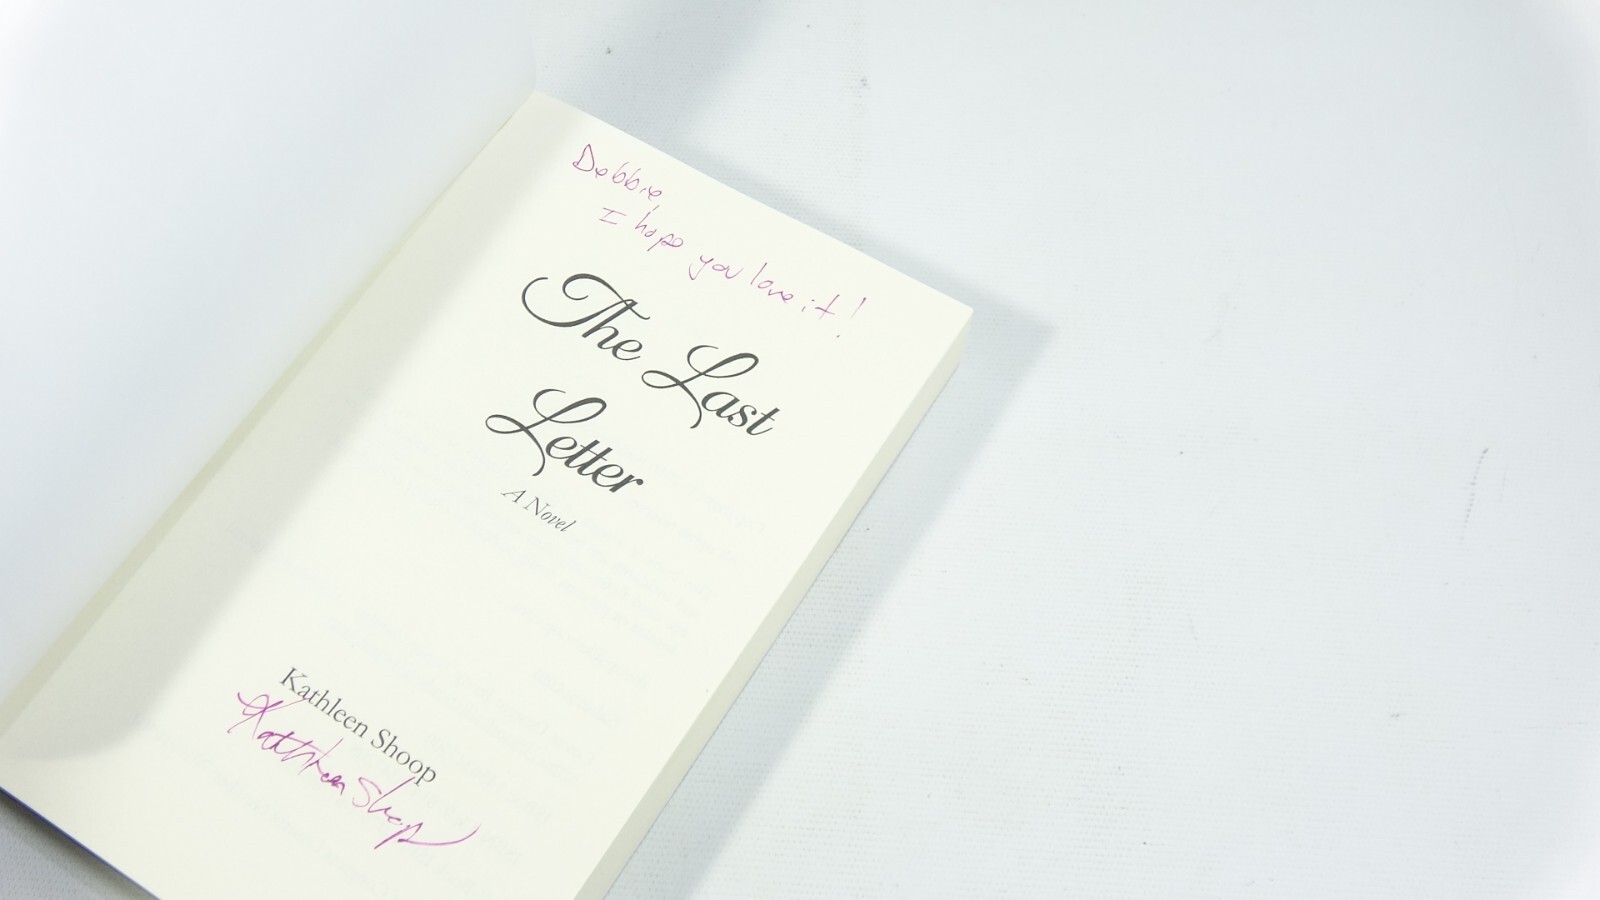 Debbie,
I hope you love it!
The Last
Letter
A Novel
Kathleen Shoop
Kathleen Shoop